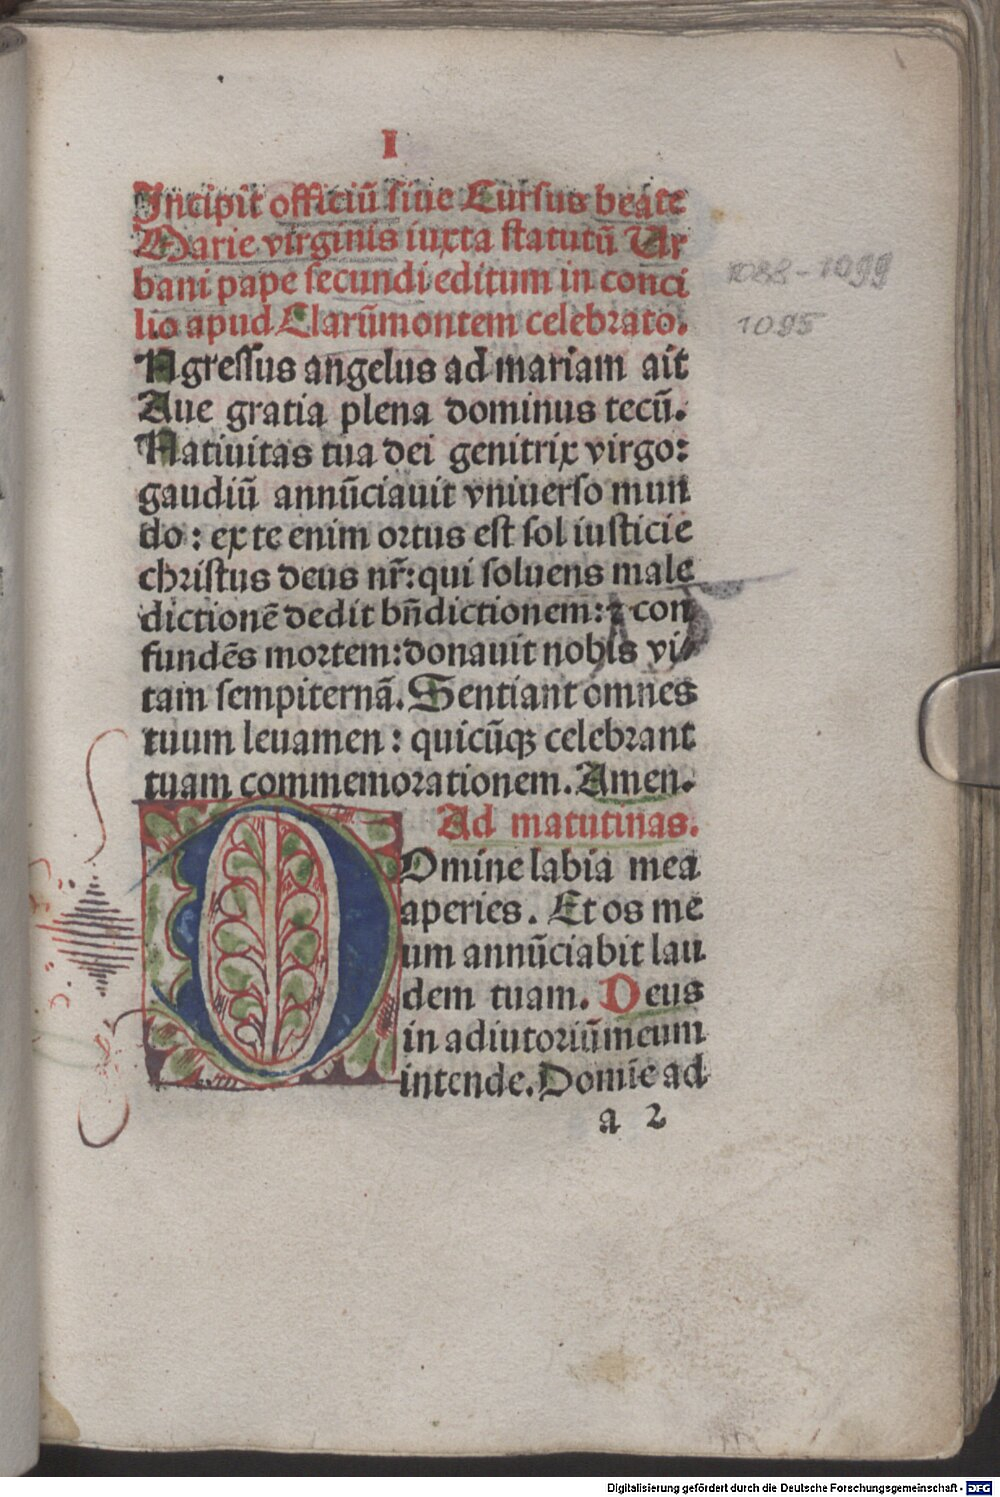 I
Incipit officiū siue Cursus beate
Marie virginis iuxta statutū Vr
bani pape secundi editum in conci
lio apud Clarūmontem celebrato.
1088-1099
1095
Ngressus angelus ad mariam ait
Aue gratia plena dominus tecū.
Natiuitas tua dei genitrix virgo:
gaudiū annūciauit vniuerso mun
do: ex te enim ortus est sol iusticie
christus deus nr̄: qui soluens male
dictionē dedit bn̄dictionem: ⁊ con
fundēs mortem: donauit nobis vi
tam sempiternā. Sentiant omnes
tuum leuamen: quicūqꝫ celebrant
tuam commemorationem. Amen.
Ad matutinas.
DOmine labia mea
aperies. Et os me
um annūciabit lau
dem tuam. Deus
in adiutoriū meum
intende. Domīe ad
a 2
Digitalisierung gefördert durch die Deutsche Forschungsgemeinschaft - DFG